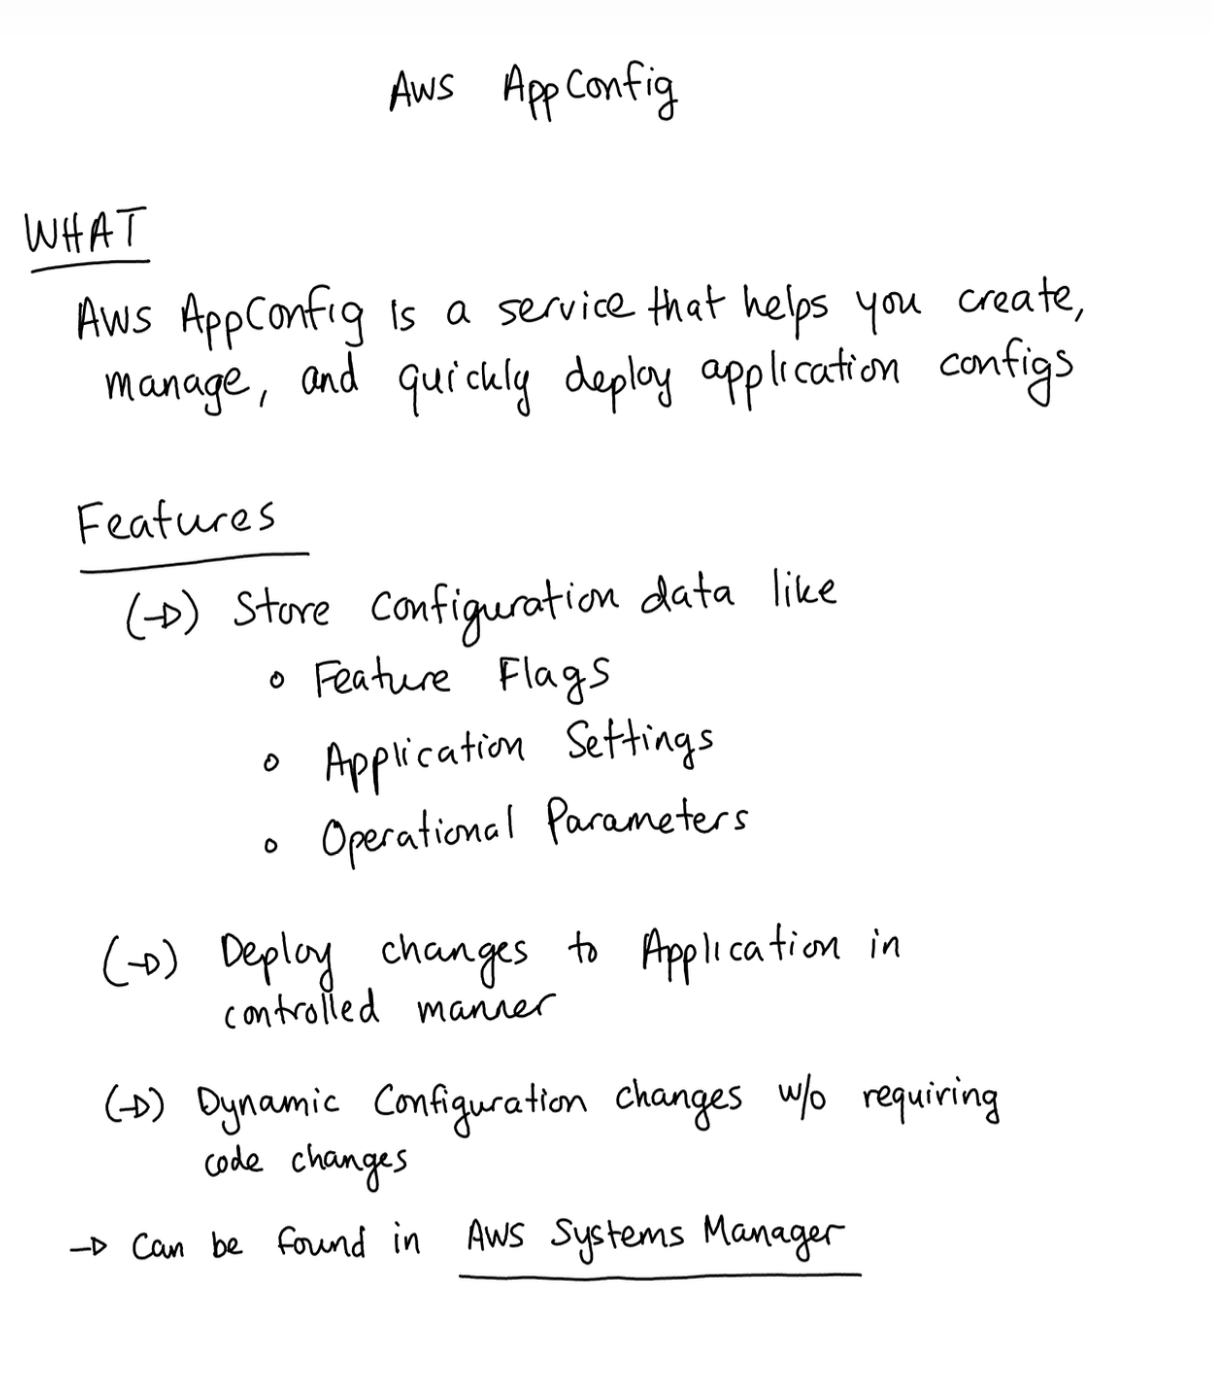 Aws AppConfig
WHAT
Aws AppConfig is a service that helps you create,
manage, and quickly deploy application configs
Features
(→) Store configuration data like
o Feature Flags
o Application Settings
o Operational Parameters
(→) Deploy changes to Application in
controlled manner
(→) Dynamic Configuration changes w/o requiring
code changes
→ Can be found in AWS Systems Manager